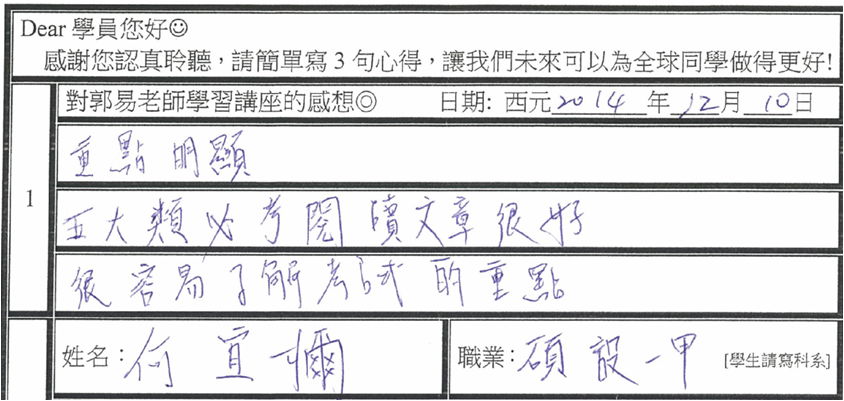 Dear 學員您好☺
感謝您認真聆聽，請簡單寫 3 句心得，讓我們未來可以為全球同學做得更好!
1
對郭易老師學習講座的感想◎ 日期: 西元2014年12月10日
重點明顯
五大類必考閱讀文章很好
很容易了解考試的重點
姓名：何宜 職業：碩設一甲 [學生請寫科系]